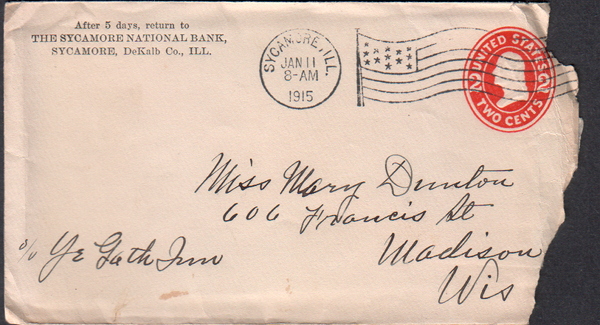 After 5 days, return to
THE SYCAMORE NATIONAL BANK,
SYCAMORE, DeKalb Co., ILL.
SYCAMORE, ILL.
JAN 11
8-AM
1915
UNITED STATES
TWO CENTS
Miss Mary Dunton
606 Francis St
Madison
Wis
c/o Ye Gath Inn